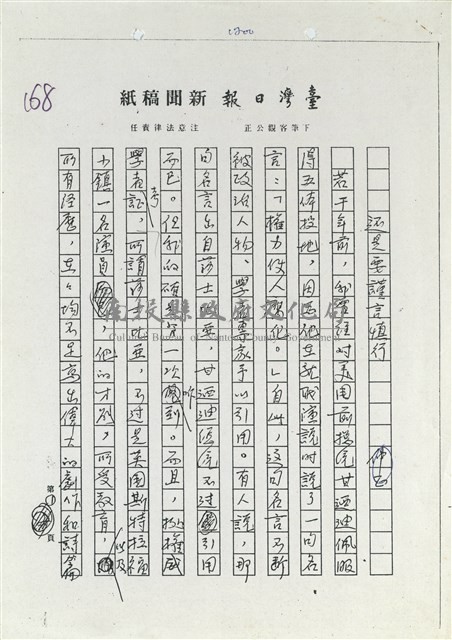 1200
168
臺灣日報 新聞稿紙
下筆客觀公正 注意法律責任
還是要謹言慎行
若干年前,我曾經對美國前總統甘迺迪佩服
得五体投地,因為他在就職演說時說了一句名
言:「權力使人腐化。」自此,這句名言不斷
被政治人物、學者專家予以引用。有人說,那
句名言出自莎士比亞,甘迺迪總統不過引用
而已。但我的碩學究一次。而且,挑權威
學者考証,所謂莎士比亞,不過是英國斯特拉福
小鎮一名演員,他的才利,所受教育,以及
所有經歷,在在均不足寫出偉大的劇作和詩篇
南投縣政府文化局
Cultural Bureau of Nantou County Government
第 頁